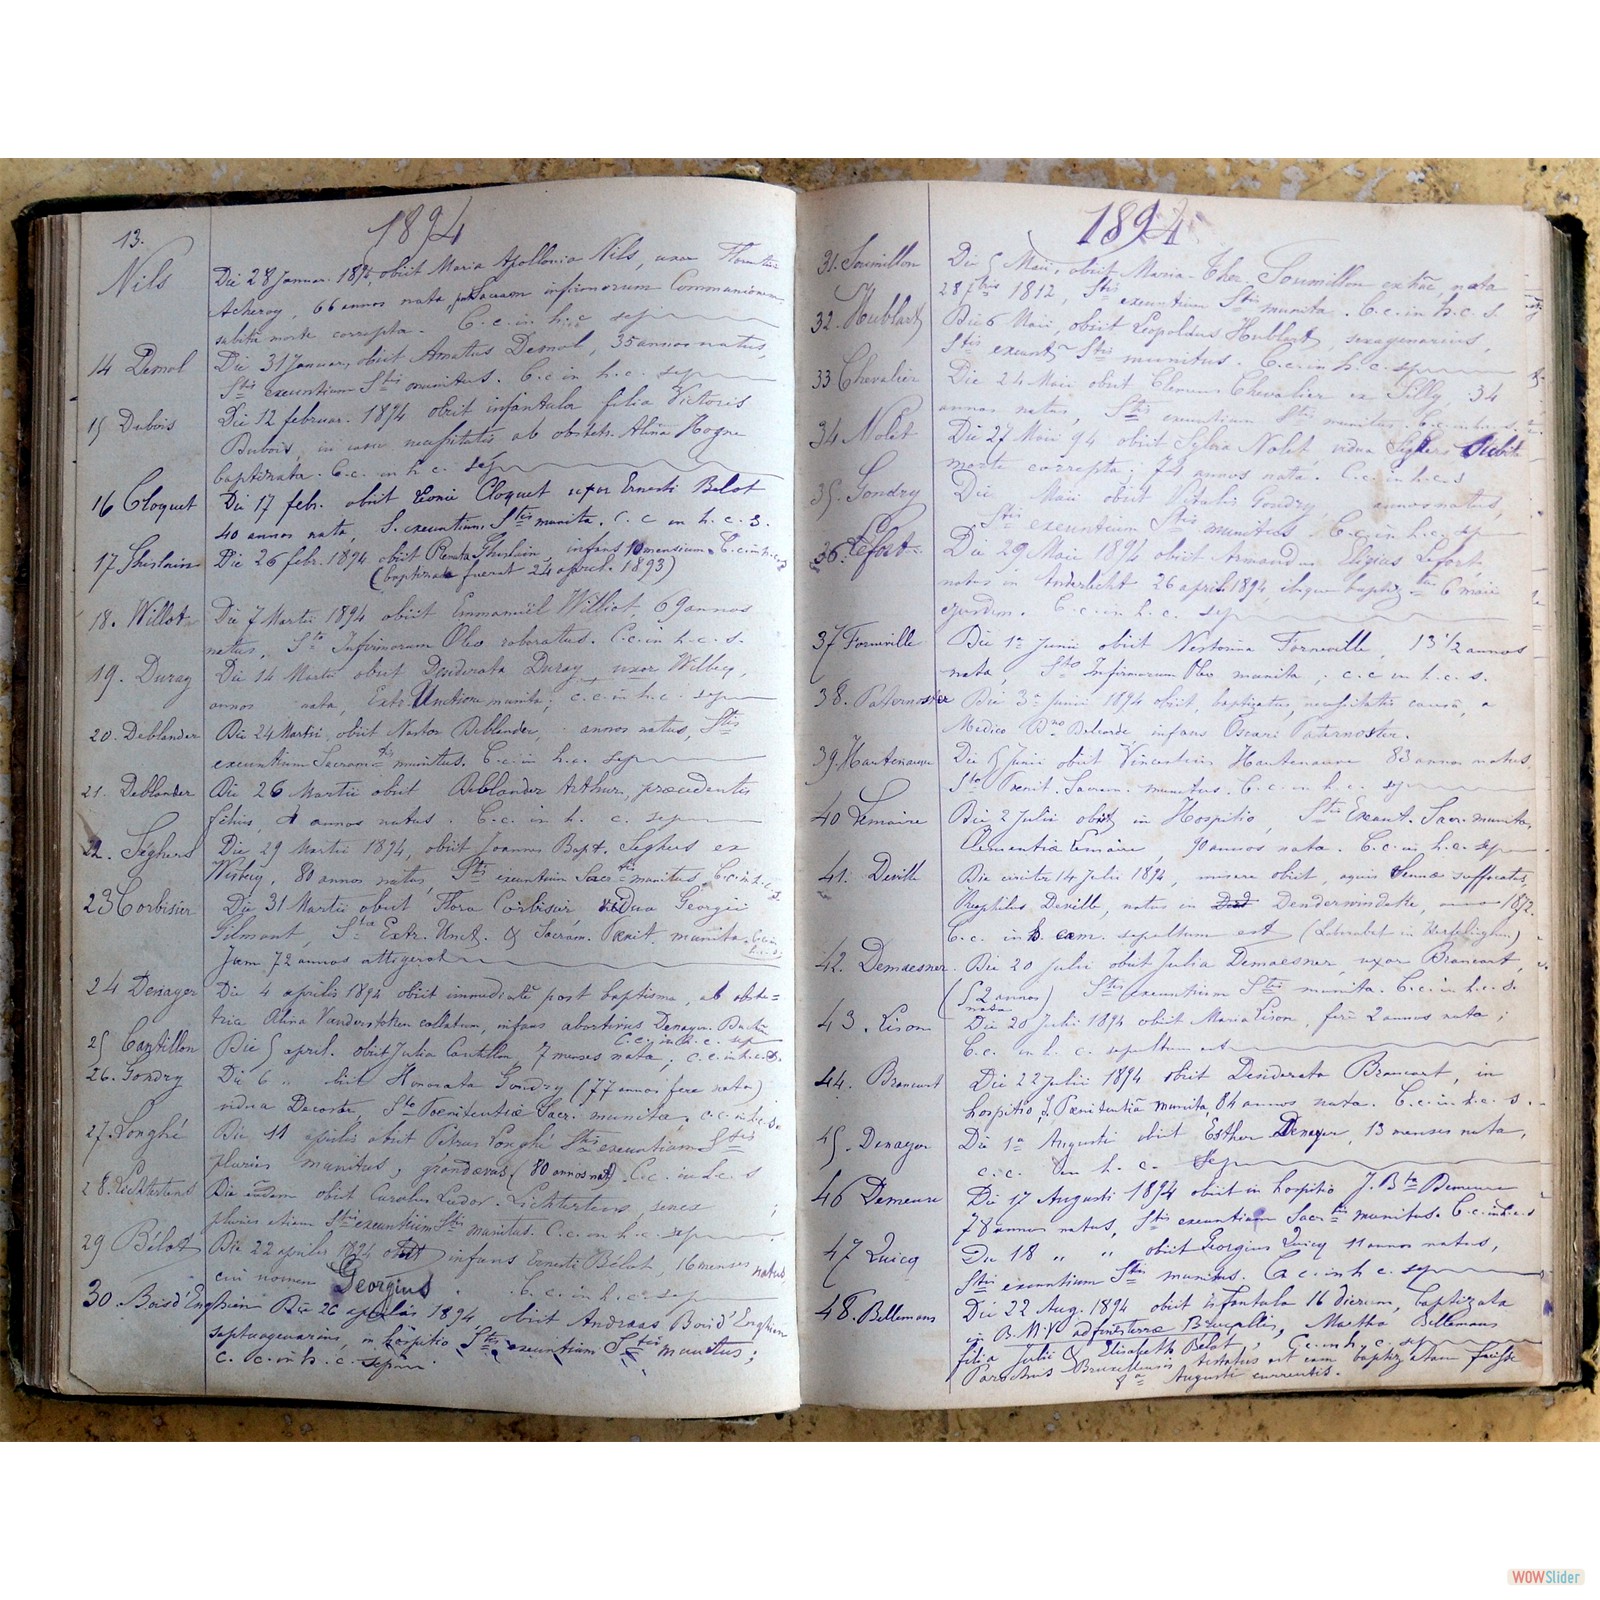 1894
13.
Nils
Die 28 Januar. 1894, obiit Maria Apollonia Nils, uxor
66 annos nata, Sacram infirmorum Communionem
morte correpta. C.c. in h.c. sep
14 Demol
Die 31 Januar, obiit Amatus Demol, 35 annos natus,
Stis exeuntium Stis munitus. C.c. in h.c. sep
15 Dubois
Die 12 februar. 1894 obiit infantula filia Victoris
Dubois, in casu necessitatis ab obstetr. Alina Hogne
baptizata. C.c. in h.c. sep
16 Cloquet
Die 17 febr. obiit Leonia Cloquet uxor Ernesti Belot
40 annos nata, S. exeuntium Stis munita. C.c in h.c.s.
17 Ghislain
Die 26 febr. 1894 obiit Renata Ghislain, infans 10 mensium. C.c. in h.c.s
(baptizata fuerat 24 april. 1893)
18. Williot
Die 7 Martii 1894 obiit Emmanuël Williot, 69 annos
natus, Sto Infirmorum Oleo roboratus. C.c. in h.c.s.
19. Duray
Die 14 Martii obiit Desiderata Duray, uxor
annos nata, Extr. Unctione munita; c.c. in h.c. sep
20. Deblander
Die 24 Martii, obiit Nestor Deblander, annos natus, Stis
exeuntium Sacramtis munitus. C.c. in h.c. sep
21. Deblander
Die 26 Martii obiit Deblander Arthur, præcedentis
filius, annos natus. C.c. in h. c. sep
22. Seghers
Die 29 Martii 1894, obiit Joannes Bapt. Seghers ex
80 annos natus, Stis exeuntium Sacrtis munitus, C.c. in h.c.s
23 Corbisier
Die 31 Martii obiit Flora Corbisier, vidua Georgii
Gilmont, Extr. Unct. & Sacram. Pœnit. munita. C.c. in h.c.s.
Jam 72 annos attigerat
24 Denayer
Die 4 aprilis 1894 obiit immediate post baptisma, ab obste=
trice Alina Vanderstoken collatum, infans abortivus Denayer.
C.c. in h.c. sep
25 Cantillon
Die 5 april. obiit Julia Cantillon, 7 menses nata; c.c. in h.c.s.
26. Gondry
Die 6 " obiit Honorata Gondry (77 annos fere nata)
vidua Decoster, Sto Pœnitentiæ Sacr. munita. C.c. in h.c.s.
27. Longhé
Die 11 aprilis obiit Petrus Longhé Stis exeuntium Stis
pluries munitus, grandævus (80 annos nat). C.c. in h.c.s
28. Lichtertens
Die eadem obiit Carolus Ludov. Lichtertens, senex
pluries etiam Stis exeuntium Stis munitus. C.c. in h.c. sep
29 Bélot
Die 22 aprilis 1894 obiit infans Ernesti Bélot, 16 menses natus,
cui nomen Georgius. C.c. in h.c. sep
30. Bois d'Enghien
Die 26 aprilis 1894 obiit Andreas Bois d'Enghien
septuagenarius, in hospitio Stis exeuntium Stis munitus;
C. c. in h.c. sepm.
1894
31. Soumillon
Die 5 Maii, obiit Maria-Ther. Soumillon nata
28 1812, Stis exeuntium Stis munita. C.c. in h.c.s.
32. Hublart
Die 6 Maii, obiit Leopoldus Hublart, sexagenarius,
Stis exeunt Stis munitus. C.c. in h.c. sep
33 Chevalier
Die 24 Maii obiit Clemens Chevalier ex Silly, 34
annos natus, Stis exeuntium Stis munitus. C.c. in h.c.s.
34 Nolet
Die 27 Maii 94 obiit Sylvia Nolet, vidua Seghers subita
morte correpta; 74 annos nata. C.c. in h.c.s
35. Gondry
Die Maii obiit Vitalis Gondry, annos natus,
Stis exeuntium Stis munitus. C.c. in h.c. sep
36. Lefort.
Die 29 Maii 1894 obiit Armandus Eligius Lefort,
natus in Anderlecht 26 april. 1894, ibique baptiz 6 maii
ejusdem. C.c. in h.c. sep
37 Forneville
Die 1a Junii obiit Nestorina Forneville, 13 1/2 annos
nata, Sto Infirmorum Oleo munita; c.c in h.c.s.
38. Paternoster
Die 3a Junii 1894 obiit, baptizatus, necessitatis causâ, a
Medico Dno infans Oscari Paternoster.
39. Hartenauve
Die 5 Junii obiit Hartenauve 83 annos natus,
Sto Pœnit. Sacram. munitus. C.c. in h.c. sep
40 Lemaire
Die 2 Julii obiit in Hospitio, Stis Exeunt. Sacr. munita,
Clementia Lemaire, 90 annos nata. C.c. in h.c. sep
41. Deville
Die circiter 14 Julii 1894, misere obiit, aquis Sennæ suffocatus,
Theophilus Deville, natus in Denderwindeke, anno 1872.
C.c. in h. cæm. sepultum est
42. Demaesner
Die 20 Julii obiit Julia Demaesner, uxor Brancart,
(52 annos nata) Stis exeuntium Stis munita. C.c. in h.c.s.
43. Lison
Die 20 Julii 1894 obiit Maria Lison, fere 2 annos nata;
C.c. in h. c. sepultum est
44. Brancart
Die 22 Julii 1894 obiit Desiderata Brancart, in
hospitio, S. Pœnitentiâ munita, 84 annos nata. C.c. in h.c.s.
45. Denayer
Die 1a Augusti obiit Esther Denayer, 13 menses nata,
C.c. in h. c. sep
46 Demeure
Die 17 Augusti 1894 obiit in hospitio J. Bta Demeure
78 annos natus, Stis exeuntium Sacrtis munitus. C.c. in h.c.s
47 Quicq
Die 18 " " obiit Georgius Quicq 11 annos natus,
Stis exeuntium Stis munitus. C.c. in h.c. sep
48. Bellemans
Die 22 Aug. 1894 obiit infantula 16 dierum, baptizata
in B.M.V. ad finisterræ Bruxellis, Martha Bellemans
filia Julii & Elisabeth Bélot; C.c. in h.c. sep
Parochus Bruxellensis testatus est eam baptizatam fuisse
8a Augusti currentis.
WOWSlider